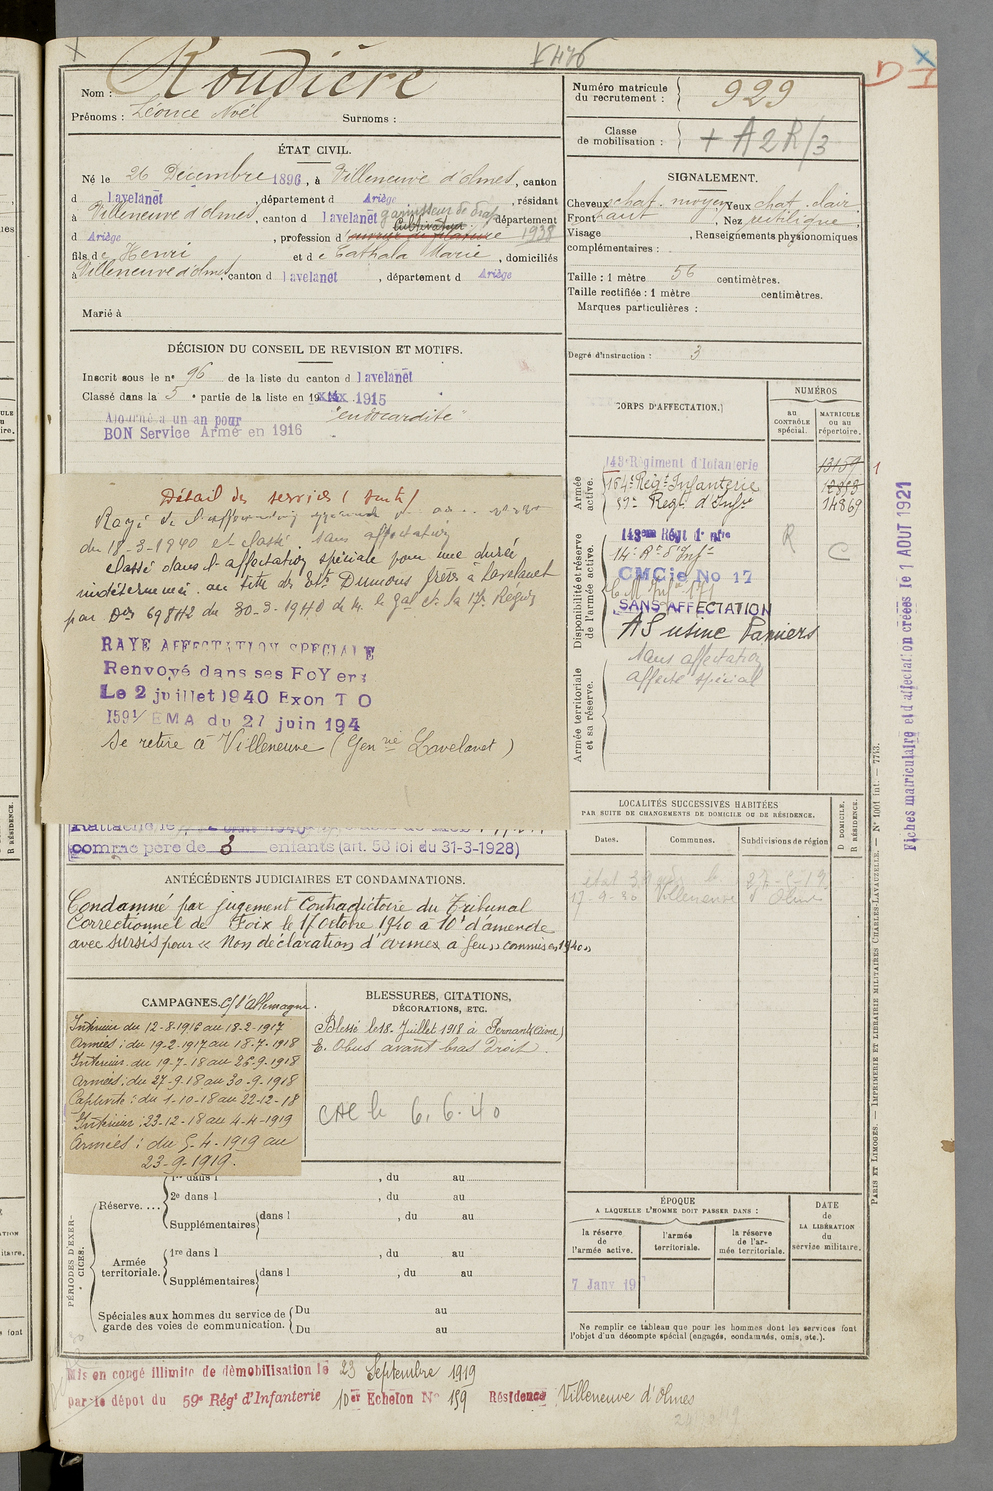 Nom : Roudière
Prénoms : Léonce Noël Surnoms :
ÉTAT CIVIL.
Né le 26 Décembre 1896, à Villeneuve d'olmes, canton
d Lavelanet, département d Ariège, résidant
à Villeneuve d'olmes, canton d Lavelanet département
garnisseur de drap
Cultivateur
d Ariège, profession d 1938
fils de Henri et de Cathala Marie, domiciliés
à Villeneuve d'olmes canton d Lavelanet, département d Ariège
Marié à
DÉCISION DU CONSEIL DE REVISION ET MOTIFS.
Inscrit sous le n° 96 de la liste du canton d Lavelanet
Classé dans la 5e partie de la liste en 1915
Ajourné à un an pour "endocardite"
BON Service Armé en 1916
Détail des services (suite)
Rayé de l'affectation
du 18-3-1940 et classé sans affectation
classé dans l'affectation spéciale pour une durée
indéterminée au titre des Ets Dumons frères à Lavelanet
par Don 698H2 du 30-3-1940 de M. le Gal Ct la 17e Région
RAYE AFFECTATION SPECIALE
Renvoyé dans ses FoYers
Le 2 juillet 1940 Exon T O
1591/EMA du 27 juin 194
Se retire à Villeneuve (Genrie Lavelanet)
comme père de 3 enfants (art. 58 loi du 31-3-1928)
ANTÉCÉDENTS JUDICIAIRES ET CONDAMNATIONS.
Condamné par jugement Contradictoire du Tribunal
Correctionnel de Foix le 17 octobre 1940 à 10f d'amende
avec sursis pour « Non déclaration d'armes à feu » commis en 1940 »
CAMPAGNES. c/ l'allemagne.
Intérieur du 12-8-1916 au 18-2-1917
Armées : du 19-2-1917 au 18-7-1918
Intérieur. du 19-7-18 au 26-9-1918
Armées : du 27-9-18 au 30-9-1918
Captivité : du 1-10-18 au 22-12-18
Intérieur : 23-12-18 au 4-4-1919
Armées : du 5-4-1919 au
23-9-1919.
BLESSURES, CITATIONS,
DÉCORATIONS, ETC.
Blessé le 18 Juillet 1918 à Pernant (Aisne)
E. Obus avant bras droit.
CAC le 6.6.40
PÉRIODES D'EXERCICES.
Réserve....
1re dans l , du au
2e dans l , du au
Supplémentaires dans l , du au
Armée territoriale.
1re dans l , du au
Supplémentaires dans l , du au
Spéciales aux hommes du service de garde des voies de communication.
Du au
Du au
Mis en congé illimité de démobilisation le 23 Septembre 1919
par le dépot du 59e Régt d'Infanterie 10er Echelon N° 159 Résidence Villeneuve d'Olmes
Numéro matricule du recrutement : 929
Classe de mobilisation : + A2R/3
SIGNALEMENT.
Cheveux chat. moyen Yeux chat. clair
Front haut, Nez rectiligne
Visage , Renseignements physionomiques
complémentaires :
Taille : 1 mètre 56 centimètres.
Taille rectifiée : 1 mètre centimètres.
Marques particulières :
Degré d'instruction : 3
CORPS D'AFFECTATION.
NUMÉROS
AU CONTRÔLE spécial.
MATRICULE OU AU répertoire.
Armée active.
143e Régiment d'Infanterie 13159
154e Régt Infanterie
59e Régt d'Infie 14869
Disponibilité et réserve de l'armée active.
143eme Régt
14e Rt d'Infie R C
CMCie No 17
SANS AFFECTATION
AS usine Pamiers
Armée territoriale et sa réserve.
sans affectation
affecté spécial
LOCALITÉS SUCCESSIVES HABITÉES
PAR SUITE DE CHANGEMENTS DE DOMICILE OU DE RÉSIDENCE.
Dates. Communes. Subdivisions de région
D DOMICILE. R RÉSIDENCE.
17-9-30 Villeneuve d'Olmes
ÉPOQUE
A LAQUELLE L'HOMME DOIT PASSER DANS :
la réserve de l'armée active.
l'armée territoriale.
la réserve de l'armée territoriale.
DATE de LA LIBÉRATION du service militaire.
7 Janv 19
Ne remplir ce tableau que pour les hommes dont les services font
l'objet d'un décompte spécial (engagés, condamnés, omis, etc.).
Fiches matriculaire et d'affectation créées le 1 AOUT 1921
PARIS ET LIMOGES. — IMPRIMERIE ET LIBRAIRIE MILITAIRES CHARLES-LAVAUZELLE. — N° 1001 int. — 7743.